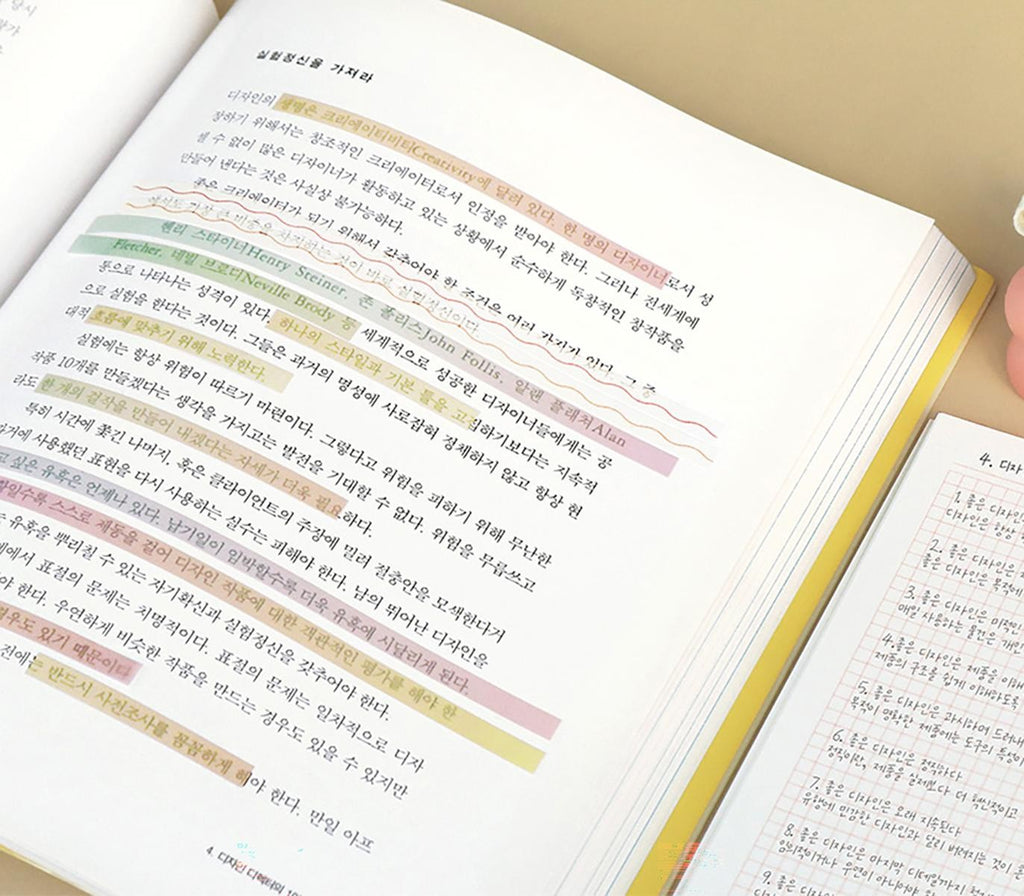 실험정신을 가져라
디자인의 생명은 크리에이티비티Creativity에 달려 있다. 한 명의 디자이너로서 성
장하기 위해서는 창조적인 크리에이터로서 인정을 받아야 한다. 그러나 전세계에
셀 수 없이 많은 디자이너가 활동하고 있는 상황에서 순수하게 독창적인 창작품을
만들어 낸다는 것은 사실상 불가능하다.
좋은 크리에이터가 되기 위해서 갖추어야 할 조건은 여러 가지가 있다. 그 중
에서도 가장 큰 비중을 차지하는 것이 바로 실험정신이다.
헨리 스타이너Henry Steiner, 존 폴리스John Follis, 알랜 플래처Alan
Fletcher, 네빌 브로디Neville Brody 등 세계적으로 성공한 디자이너들에게는 공
통으로 나타나는 성격이 있다. 하나의 스타일과 기본 틀을 고집하기보다는 지속적
으로 실험을 한다는 것이다. 그들은 과거의 명성에 사로잡혀 정체하지 않고 항상 현
대적 흐름에 맞추기 위해 노력한다.
실험에는 항상 위험이 따르기 마련이다. 그렇다고 위험을 피하기 위해 무난한
작품 10개를 만들겠다는 생각을 가지고는 발전을 기대할 수 없다. 위험을 무릅쓰고
라도 한 개의 걸작을 만들어 내겠다는 자세가 더욱 필요하다.
특히 시간에 쫓긴 나머지, 혹은 클라이언트의 주장에 밀려 절충안을 모색한다거
과거에 사용했던 표현을 다시 사용하는 실수는 피해야 한다. 남의 뛰어난 디자인을
고 싶은 유혹은 언제나 있다. 납기일이 임박할수록 더욱 유혹에 시달리게 된다.
할수록 스스로 제동을 걸어 디자인 작품에 대한 객관적인 평가를 해야 한
유혹을 뿌리칠 수 있는 자기확신과 실험정신을 갖추어야 한다.
에서 표절의 문제는 치명적이다. 표절의 문제는 일차적으로 디자
야 한다. 우연하게 비슷한 작품을 만드는 경우도 있을 수 있지만
경우도 있기 때문이다
전에는 반드시 사전조사를 꼼꼼하게 해야 한다. 만일 아프
4. 디자인 디렉터의
4. 디자
1. 좋은 디자인
디자인은 항상
2. 좋은 디자인은
좋은 디자인은 목적에
3. 좋은 디자인은 미적인
매일 사용하는 물건은 개인
4. 좋은 디자인은 제품을 이해
제품의 구조를 쉽게 이해하도록
5. 좋은 디자인은 과시하며 드러내
목적이 명확한 제품에는 도구의 특성이
6. 좋은 디자인은 정직하다
정직이란, 제품을 실제보다 더 혁신적이고
7. 좋은 디자인은 오래 지속된다
유행에 민감한 디자인과 달리 버려지는 것이
8. 좋은 디자인은 마지막 디테일까지
임의적이거나 우연이 아니어야
9. 좋은 디자인은